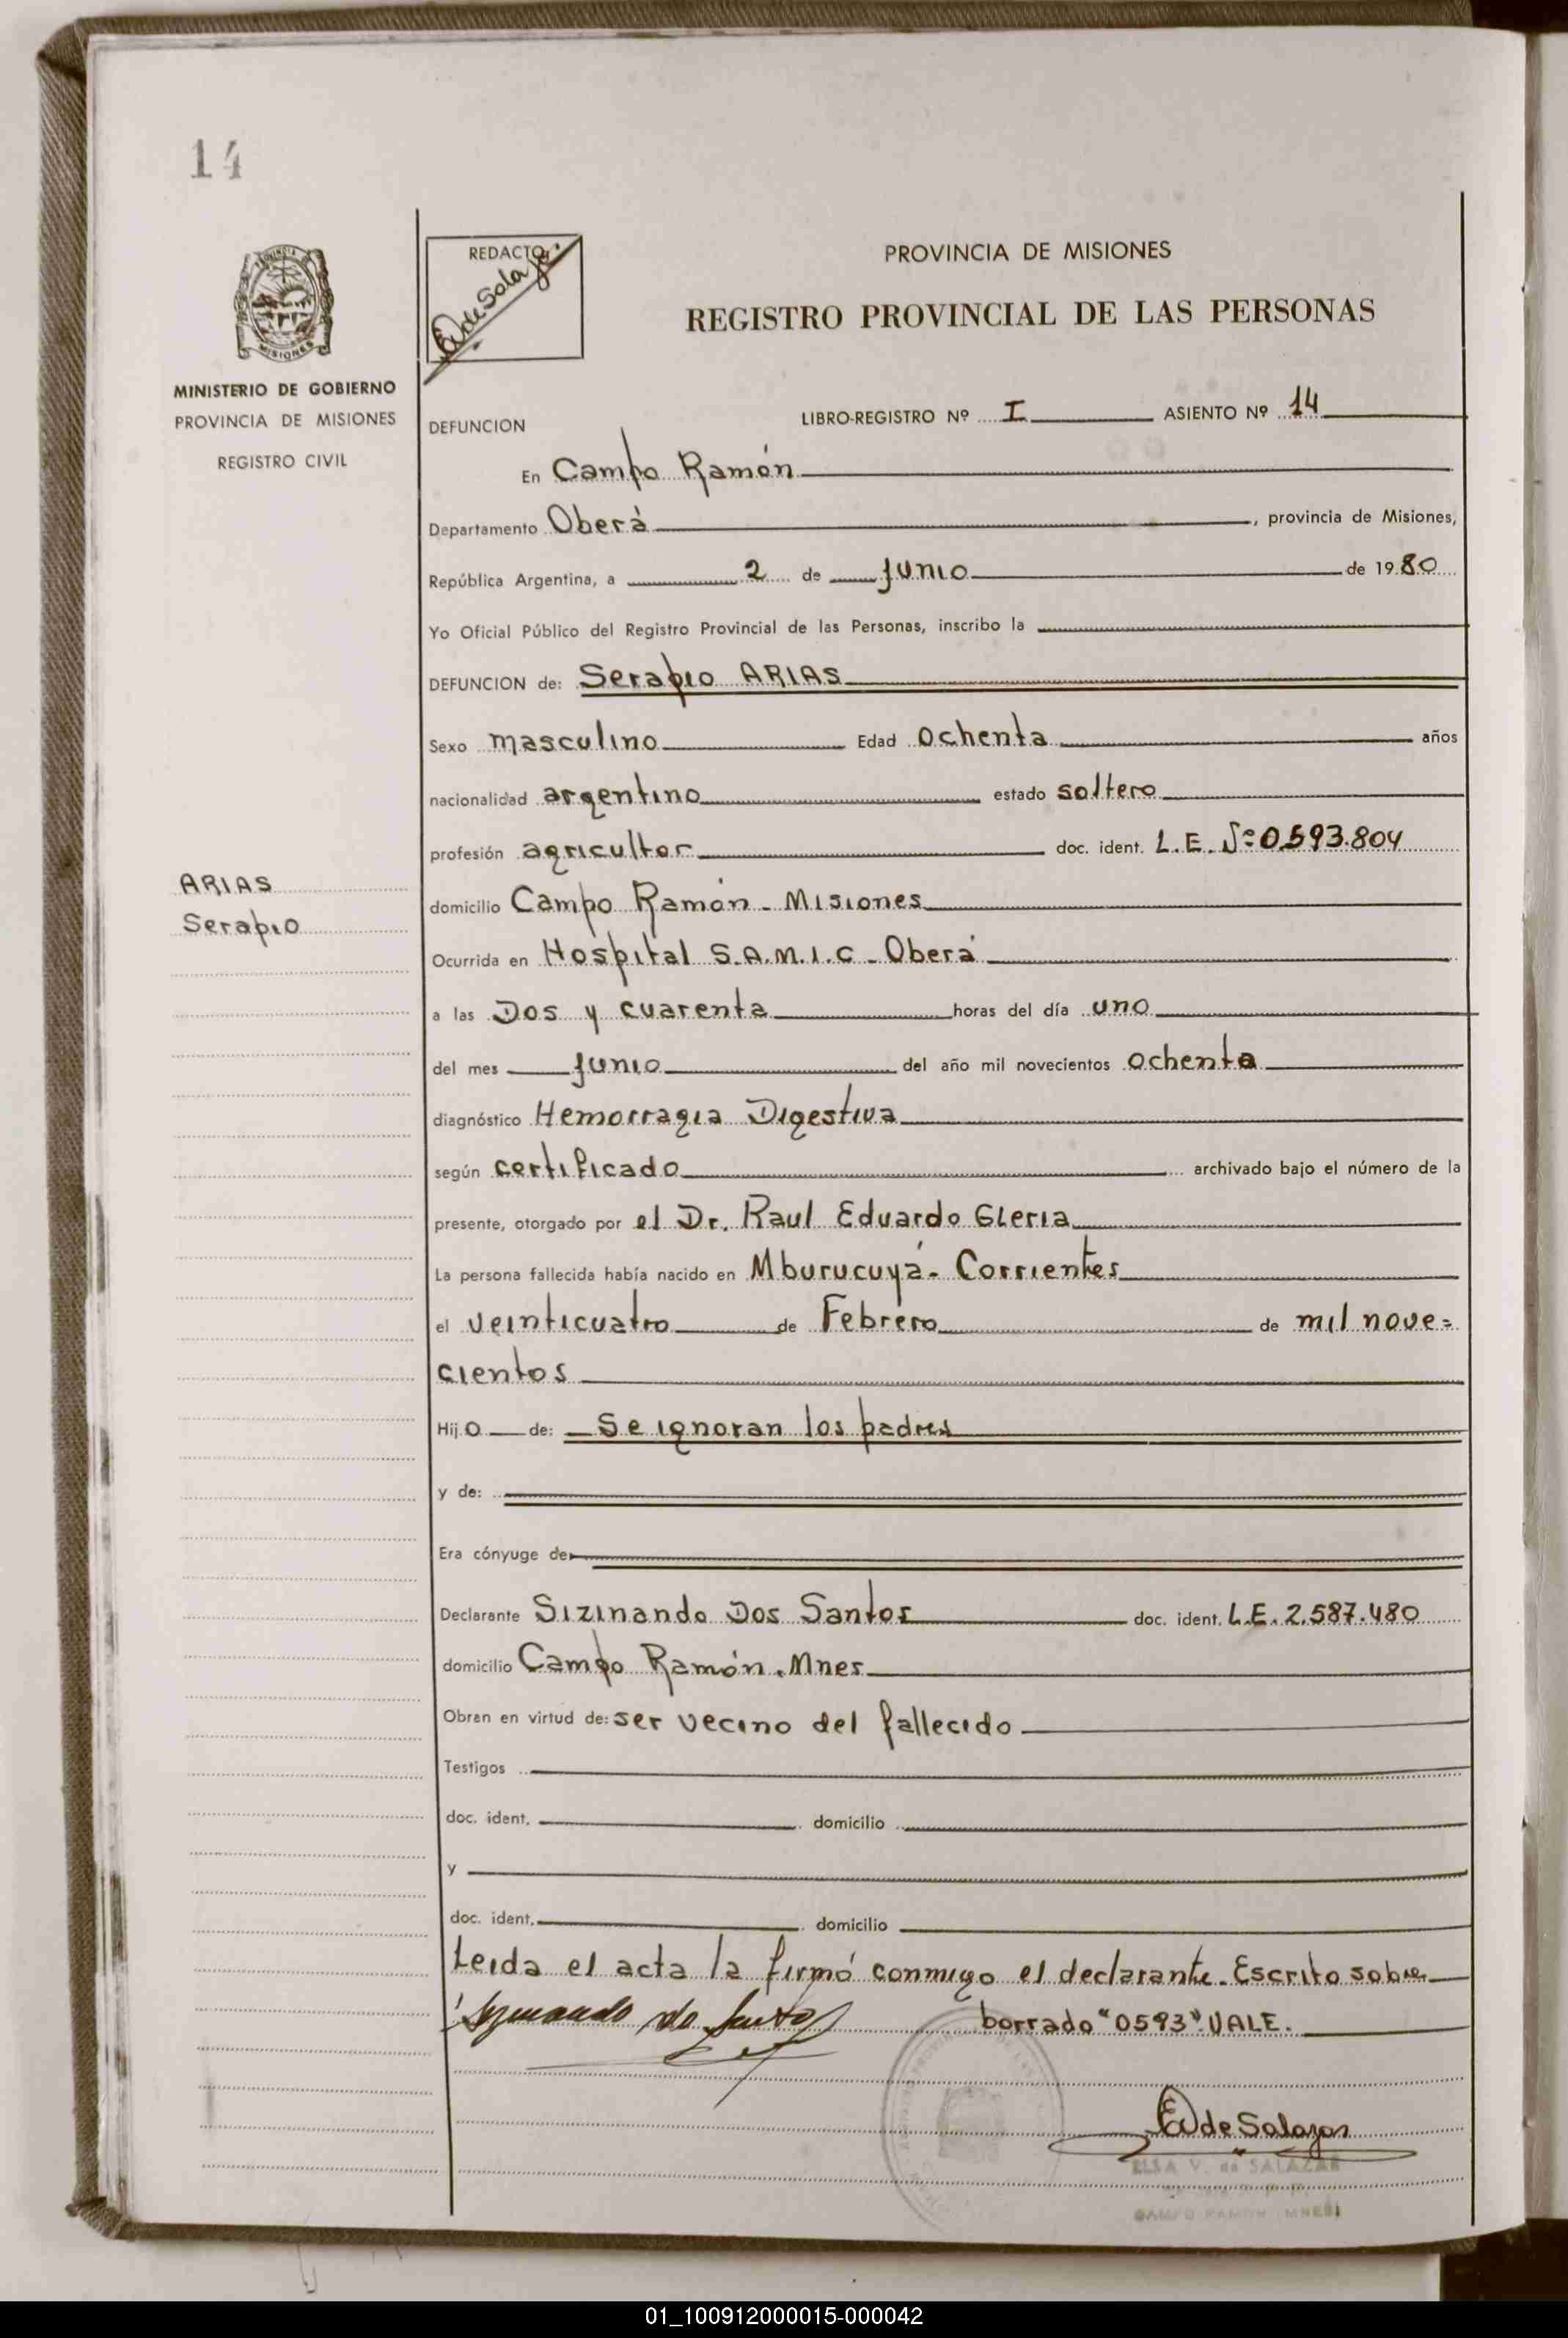 14
MINISTERIO DE GOBIERNO
PROVINCIA DE MISIONES
REGISTRO CIVIL
ARIAS
Serapio
REDACTO
E V de Salazar
PROVINCIA DE MISIONES
REGISTRO PROVINCIAL DE LAS PERSONAS
DEFUNCION LIBRO-REGISTRO Nº I ASIENTO Nº 14
En Campo Ramón
Departamento Oberá, provincia de Misiones,
República Argentina, a 2 de junio de 1980
Yo Oficial Público del Registro Provincial de las Personas, inscribo la
DEFUNCION de: Serapio ARIAS
Sexo masculino Edad ochenta años
nacionalidad argentino estado soltero
profesión agricultor doc. ident. L.E. Nº 0593.804
domicilio Campo Ramón - Misiones
Ocurrida en Hospital S.A.M.I.C - Oberá
a las Dos y cuarenta horas del día uno
del mes junio del año mil novecientos ochenta
diagnóstico Hemorragia Digestiva
según certificado archivado bajo el número de la
presente, otorgado por el Dr. Raul Eduardo Gleria
La persona fallecida había nacido en Mburucuyá - Corrientes
el veinticuatro de Febrero de mil nove=
cientos
Hijo de: Se ignoran los padres
y de:
Era cónyuge de
Declarante Sizinando Dos Santos doc. ident. L.E. 2.587.480
domicilio Campo Ramón. Mnes
Obran en virtud de: ser vecino del fallecido
Testigos
doc. ident. domicilio
y
doc. ident. domicilio
Leida el acta la firmó conmigo el declarante. Escrito sobre
borrado "0593" VALE.
E V de Salazar
ELSA V. de SALAZAR
CAMPO RAMON MNES
01_100912000015-000042